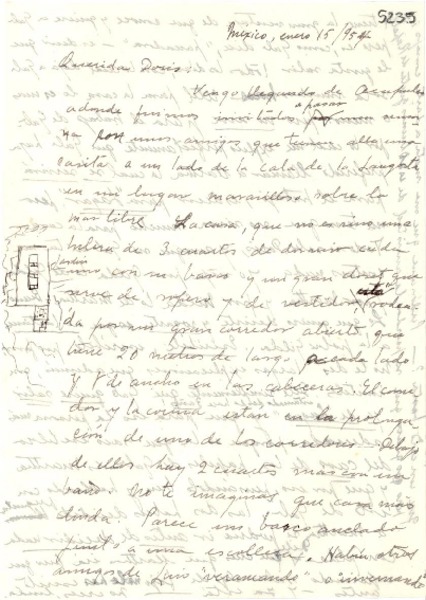 5235
México, enero 15/954
Querida Doris:
Vengo llegando de Acapulco
adonde fuimos invitados a pasar una sema
na por unos amigos que tienen alla una
casita a un lado de la caleta de la langosta
en un lugar maravilloso sobre la
mar libre. La casa, que no es sino una
hilera de 3 cuartos de dormir cada
uno con su baño y un gran closet que
sirve de ropero y de vestidor, está rodea
da por un gran corredor abierto que
tiene 20 metros de largo cada lado
y 8 de ancho en las cabeceras. El come
dor y la cocina estan en la prolonga
ción de uno de los corredores. Debajo
de ellos hay 2 cuartos mas con un
baño. No te imaginas que cosa más
linda. Parece un barco anclado
junto a una escollera. Habia otros
amigos de Luis "veraneando" o "invernando"
jardin